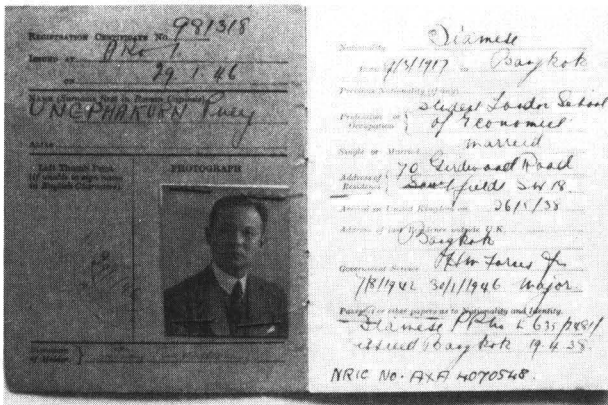 REGISTRATION CERTIFICATE No. 981318
ISSUED AT ARO 1.
ON 29.1.46
NAME (Surname first in Roman Capitals)
UNGPHAKORN Puey
ALIAS
Left Thumb Print
(if unable to sign name
in English Characters)
PHOTOGRAPH
Signature
of Holder
Nationality Siamese
Born 9/3/1917 in Bangkok
Previous Nationality (if any)
Profession or Occupation } Student London School
of Economics
Single or Married married
Address of Residence } 70 Girdwood Road
Southfields SW 18.
Arrival in United Kingdom on 26/5/38
Address of last Residence outside U.K.
Bangkok
Government Service HM Forces
7/8/1942 30/1/1946 Major
Passport or other papers as to Nationality and Identity.
Siamese PP No
issued Bangkok 19.4.38.
NRIC NO. AXA 4070548.